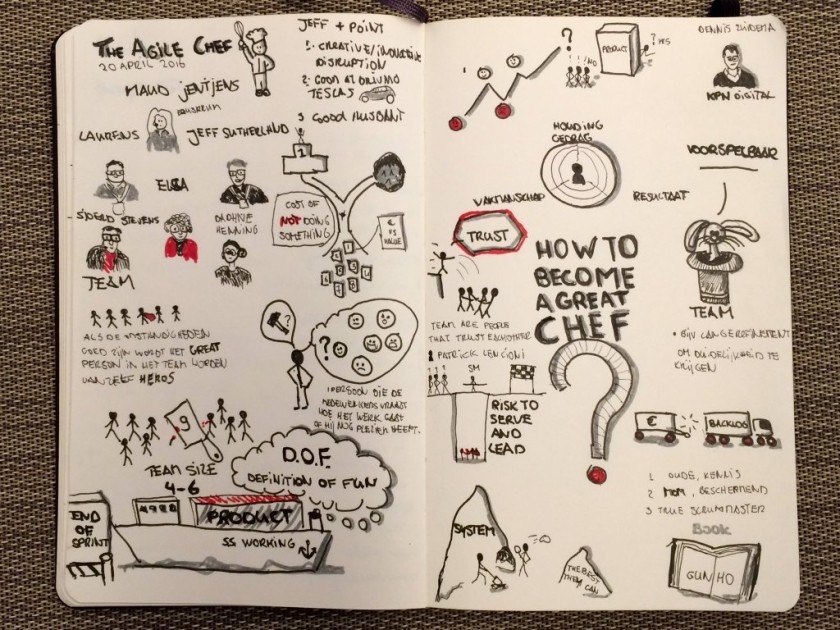 THE AGILE CHEF
20 APRIL 2016
MAUD JENTJENS
LAURENS
JEFF SUTHERLAND
ELSA
SJOERD STEVENS
DAPHNE
HENNING
TEAM
ALS DE OMSTANDIGHEDEN
GOED ZIJN WORDT HET GREAT
PERSON IN HET TEAM WORDEN
VANZELF HEROS
9
TEAM SIZE
4-6
END
OF
SPRINT
PRODUCT
SS WORKING
JEFF + POINT
1. CREATIVE/INNOVATIVE
DISRUPTION
2. GOOD AT DRIVING
TESLAS
3 GOOD HUSBANT
1
COST OF
NOT DOING
SOMETHING
€
VALUE
?
1 PERSOON DIE DE
MEDEWERKERS VRAAGT
HOE HET WERK GAAT
OF HIJ NOG PLEZIER HEEFT.
D.O.F.
DEFINITION OF FUN
?
NO
PRODUCT
YES
HOUDING
GEDRAG
VAKMANSCHAP
RESULTAAT
TRUST
TEAM ARE PEOPLE
THAT TRUST EACHOTHER
PATRICK LENCIONI
SM
RISK TO
SERVE
AND
LEAD
SYSTEM
THE BEST
THEY CAN
HOW TO
BECOME
A GREAT
CHEF
?
DENNIS ZUIDEMA
KPN DIGITAL
VOORSPELBAAR
TEAM
• BIJV LANGE REFINEMENT
OM DUIDELIJKHEID TE
KRIJGEN
€
BACKLOG
1 OUDE, KENNIS
2 MOM, BESCHERMEND
3 TRUE SCRUMMASTER
BOOK
GUNG HO